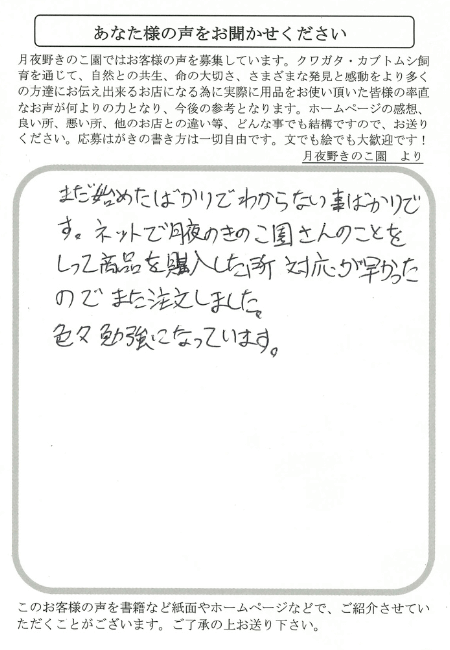 あなた様の声をお聞かせください
月夜野きのこ園ではお客様の声を募集しています。クワガタ・カブトムシ飼
育を通じて、自然との共生、命の大切さ、さまざまな発見と感動をより多く
の方達にお伝え出来るお店になる為に実際に用品をお使い頂いた皆様の率直
なお声が何よりの力となり、今後の参考となります。ホームページの感想、
良い所、悪い所、他のお店との違い等、どんな事でも結構ですので、お送り
ください。応募はがきの書き方は一切自由です。文でも絵でも大歓迎です！
月夜野きのこ園　より
まだ始めたばかりでわからない事ばかりで
す。ネットで月夜のきのこ園さんのことを
しって商品を購入した所 対応が早かった
のでまた注文しました。
色々勉強になっています。
このお客様の声を書籍など紙面やホームページなどで、ご紹介させてい
ただくことがございます。ご了承の上お送り下さい。